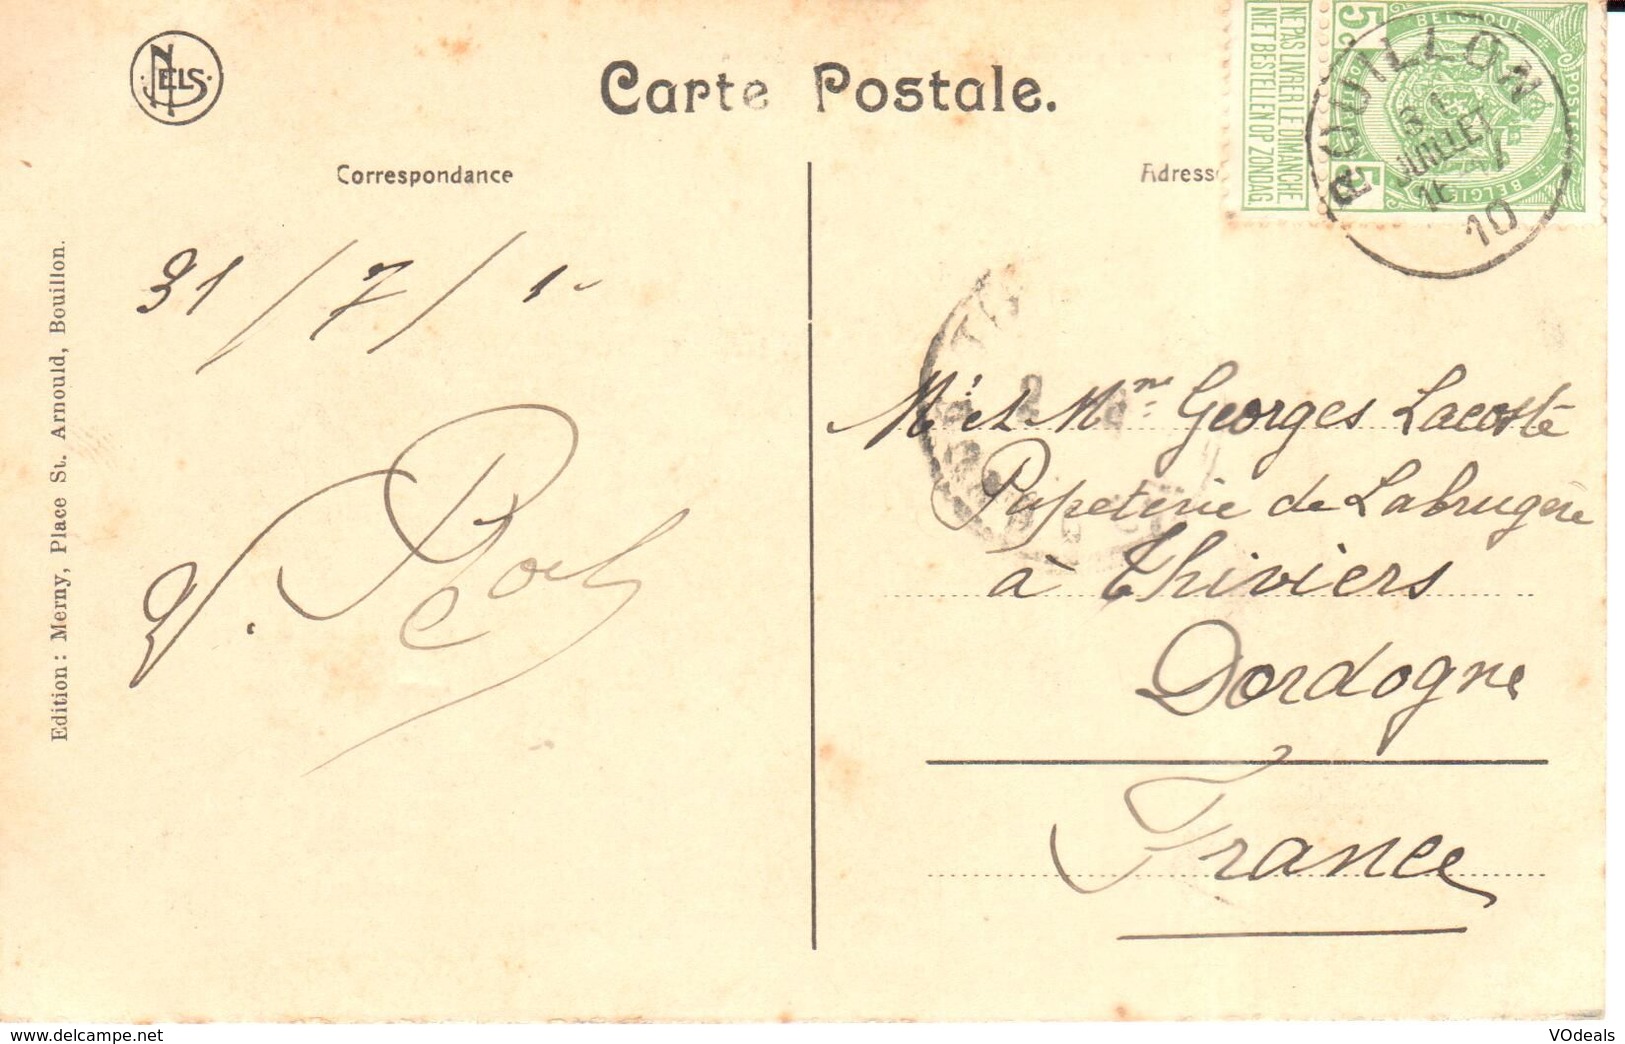 NELS
Carte Postale.
NE PAS LIVRER LE DIMANCHE
NIET BESTELLEN OP ZONDAG
5
BELGIQUE
POSTES
BELGIË
5
BOUILLON
31
JUILLET
10
Correspondance
Adresse
31/7/10
Edition : Merny, Place St. Arnould, Bouillon.
Mr et Mme Georges Lacoste
Papeterie de Labrugère
à Thiviers
Dordogne
France
www.delcampe.net
VOdeals